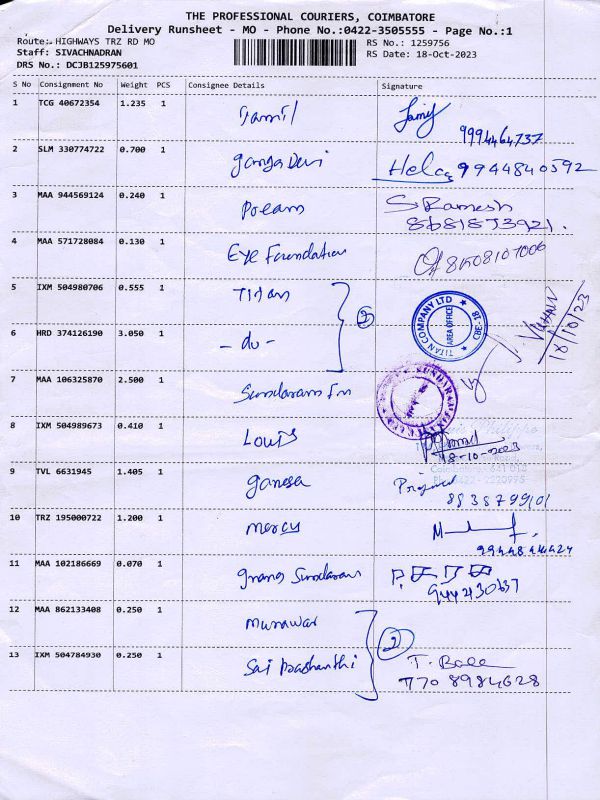 THE PROFESSIONAL COURIERS, COIMBATORE
Delivery Runsheet - MO - Phone No.:0422-3505555 - Page No.:1
Route: HIGHWAYS TRZ RD MO RS No.: 1259756
Staff: SIVACHNADRAN RS Date: 18-Oct-2023
DRS No.: DCJB125975601
S No Consignment No Weight PCS Consignee Details Signature
1 TCG 40672354 1.235 1 Tamil
9994464737
2 SLM 330774722 0.700 1 ganga Devi Hela 9944840592
3 MAA 944569124 0.240 1 S Ramesh
8681873921.
4 MAA 571728084 0.130 1 Eye Foundation
5 IXM 504980706 0.555 1 Titan 2 TITAN COMPANY LTD AREA OFFICE CBE-18
18/10/23
6 HRD 374126190 3.050 1 - do -
7 MAA 106325870 2.500 1 Sundaram Fin
8 IXM 504989673 0.410 1 Louis 18-10-2023
9 TVL 6631945 1.405 1 ganesa
8838799101
10 TRZ 195000722 1.200 1 mercy
11 MAA 102186669 0.070 1 Sundaram
12 MAA 862133408 0.250 1 Munawar 2
13 IXM 504784930 0.250 1 Sai Prashanthi T. Bala
770 8984628